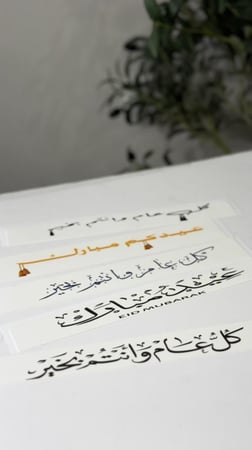 كل عام وانتم بخير
عيدكم مبارك
كل عام وانتم بخير
عيد مبارك
EID MUBARAK
كل عام وأنتم بخير